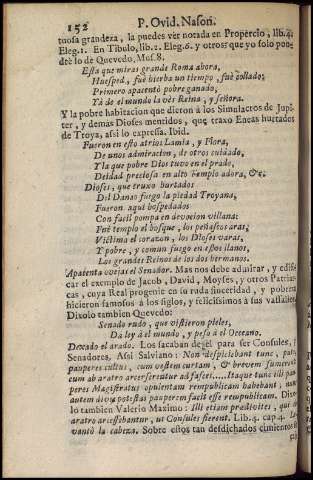 152 P. Ovid. Nason.
tuosa grandeza, la puedes ver notada en Propercio, lib. 4.
Eleg. 1. En Tibulo, lib. 2. Eleg. 6. y otros que yo solo pon
dre lo de Quevedo, Mus. 8.
Esta que miras grande Roma ahora,
Huesped, fuè hierba un tiempo, fuè collado;
Primero apacentò pobre ganado,
Yà de el mundo la vès Reina, y señora.
Y la pobre habitacion que dieron à los Simulacros de Jupi
ter, y demas Dioses mentidos, que traxo Eneas hurtados
de Troya, assi lo expressa. Ibid.
Fueron en estos atrios Lamia, y Flora,
De unos admiracion, de otros cuidado,
Y la que pobre Dios tuvo en el prado,
Deidad preciosa en alto templo adora, &c.
Dioses, que truxo hurtados
Del Danao fuego la piedad Troyana,
Fueron aqui hospedados
Con facil pompa en devocion villana:
Fuè templo el bosque, los peñascos aras,
Victima el corazon, los Dioses varas,
Y pobre, y comun fuego en estos llanos,
Los grandes Reinos de los dos hermanos.
Apacenta ovejas el Senador. Mas nos debe admirar, y edifi
car el exemplo de Jacob, David, Moyses, y otros Patriar
cas, cuya Real progenie en su ruda sinceridad, y pobreza
hicieron famosos à los siglos, y felicissimos à sus vassallos
Dixolo tambien Quevedo:
Senado rudo, que vistieron pieles,
Dà ley à el mundo, y peso à el Occeano.
Dexado el arado. Los sacaban de èl para ser Consules,
Senadores, Assi Salviano: Non despiciebant tunc,
pauperes cultus, cum vestem curtam, & brevem sumerent
cum ab aratro arcerserentur ad fasces..... Itaque tunc illi pau
peres Magistratus opulentam rempublicam habebant, nunc
autem dives potestas pauperem facit esse rempublicam. Dixo
lo tambien Valerio Maximo: Illi etiam predivites, qui ab
aratro arcessebantur, ut Consules fierent. Lib. 4. cap. 4.
vantò la cabeza. Sobre estos tan desdichados cimientos